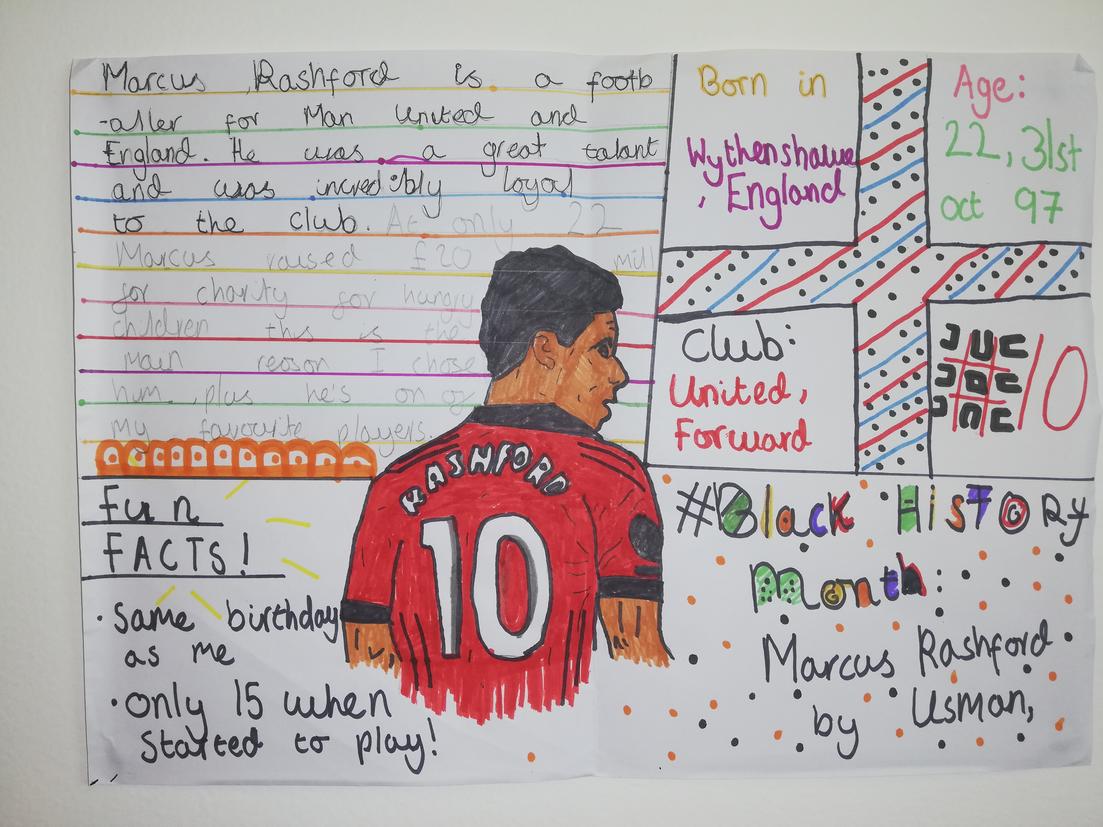 Marcus Rashford is a footb
-aller for Man United and
England. He was a great talant
and was incredibly loyal
to the club. At only 22
Marcus raised £20 mill
for charity for hungry
children this is the
main reason I chose
him, plus he's on of
my favourite players.
Born in
Wythenshawe
, England
Age:
22, 31st
oct 97
Club:
United,
Forward
10
RASHFORD
10
Fun
FACTS!
· Same birthday
as me
· only 15 when
Started to play!
#Black HisTORy
Month:
Marcus Rashford
by Usman,